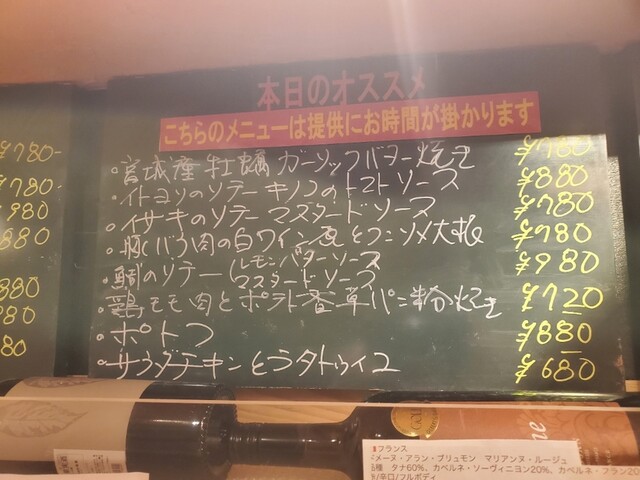 本日のオススメ
こちらのメニューは提供にお時間が掛かります
・宮城産牡蠣ガーリックバター焼き ¥780
・イトヨリのソテー キノコのトマトソース ¥880
・イサキのソテー マスタードソース ¥780
・豚バラ肉の白ワイン煮とコンソメ大根 ¥780
・鯛のソテー レモンバターソース ¥980
マスタードソース
・鶏モモ肉とポテト香草パン粉焼き ¥720
・ポトフ ¥880
・サラダチキンとラタトゥイユ ¥680
¥780-
¥780-
¥980
880
880
980
80
フランス
ドメーヌ・アラン・ブリュモン マリアンヌ・ルージュ
品種 タナ60%、カベルネ・ソーヴィニヨン20%、カベルネ・フラン20
辛口/フルボディ